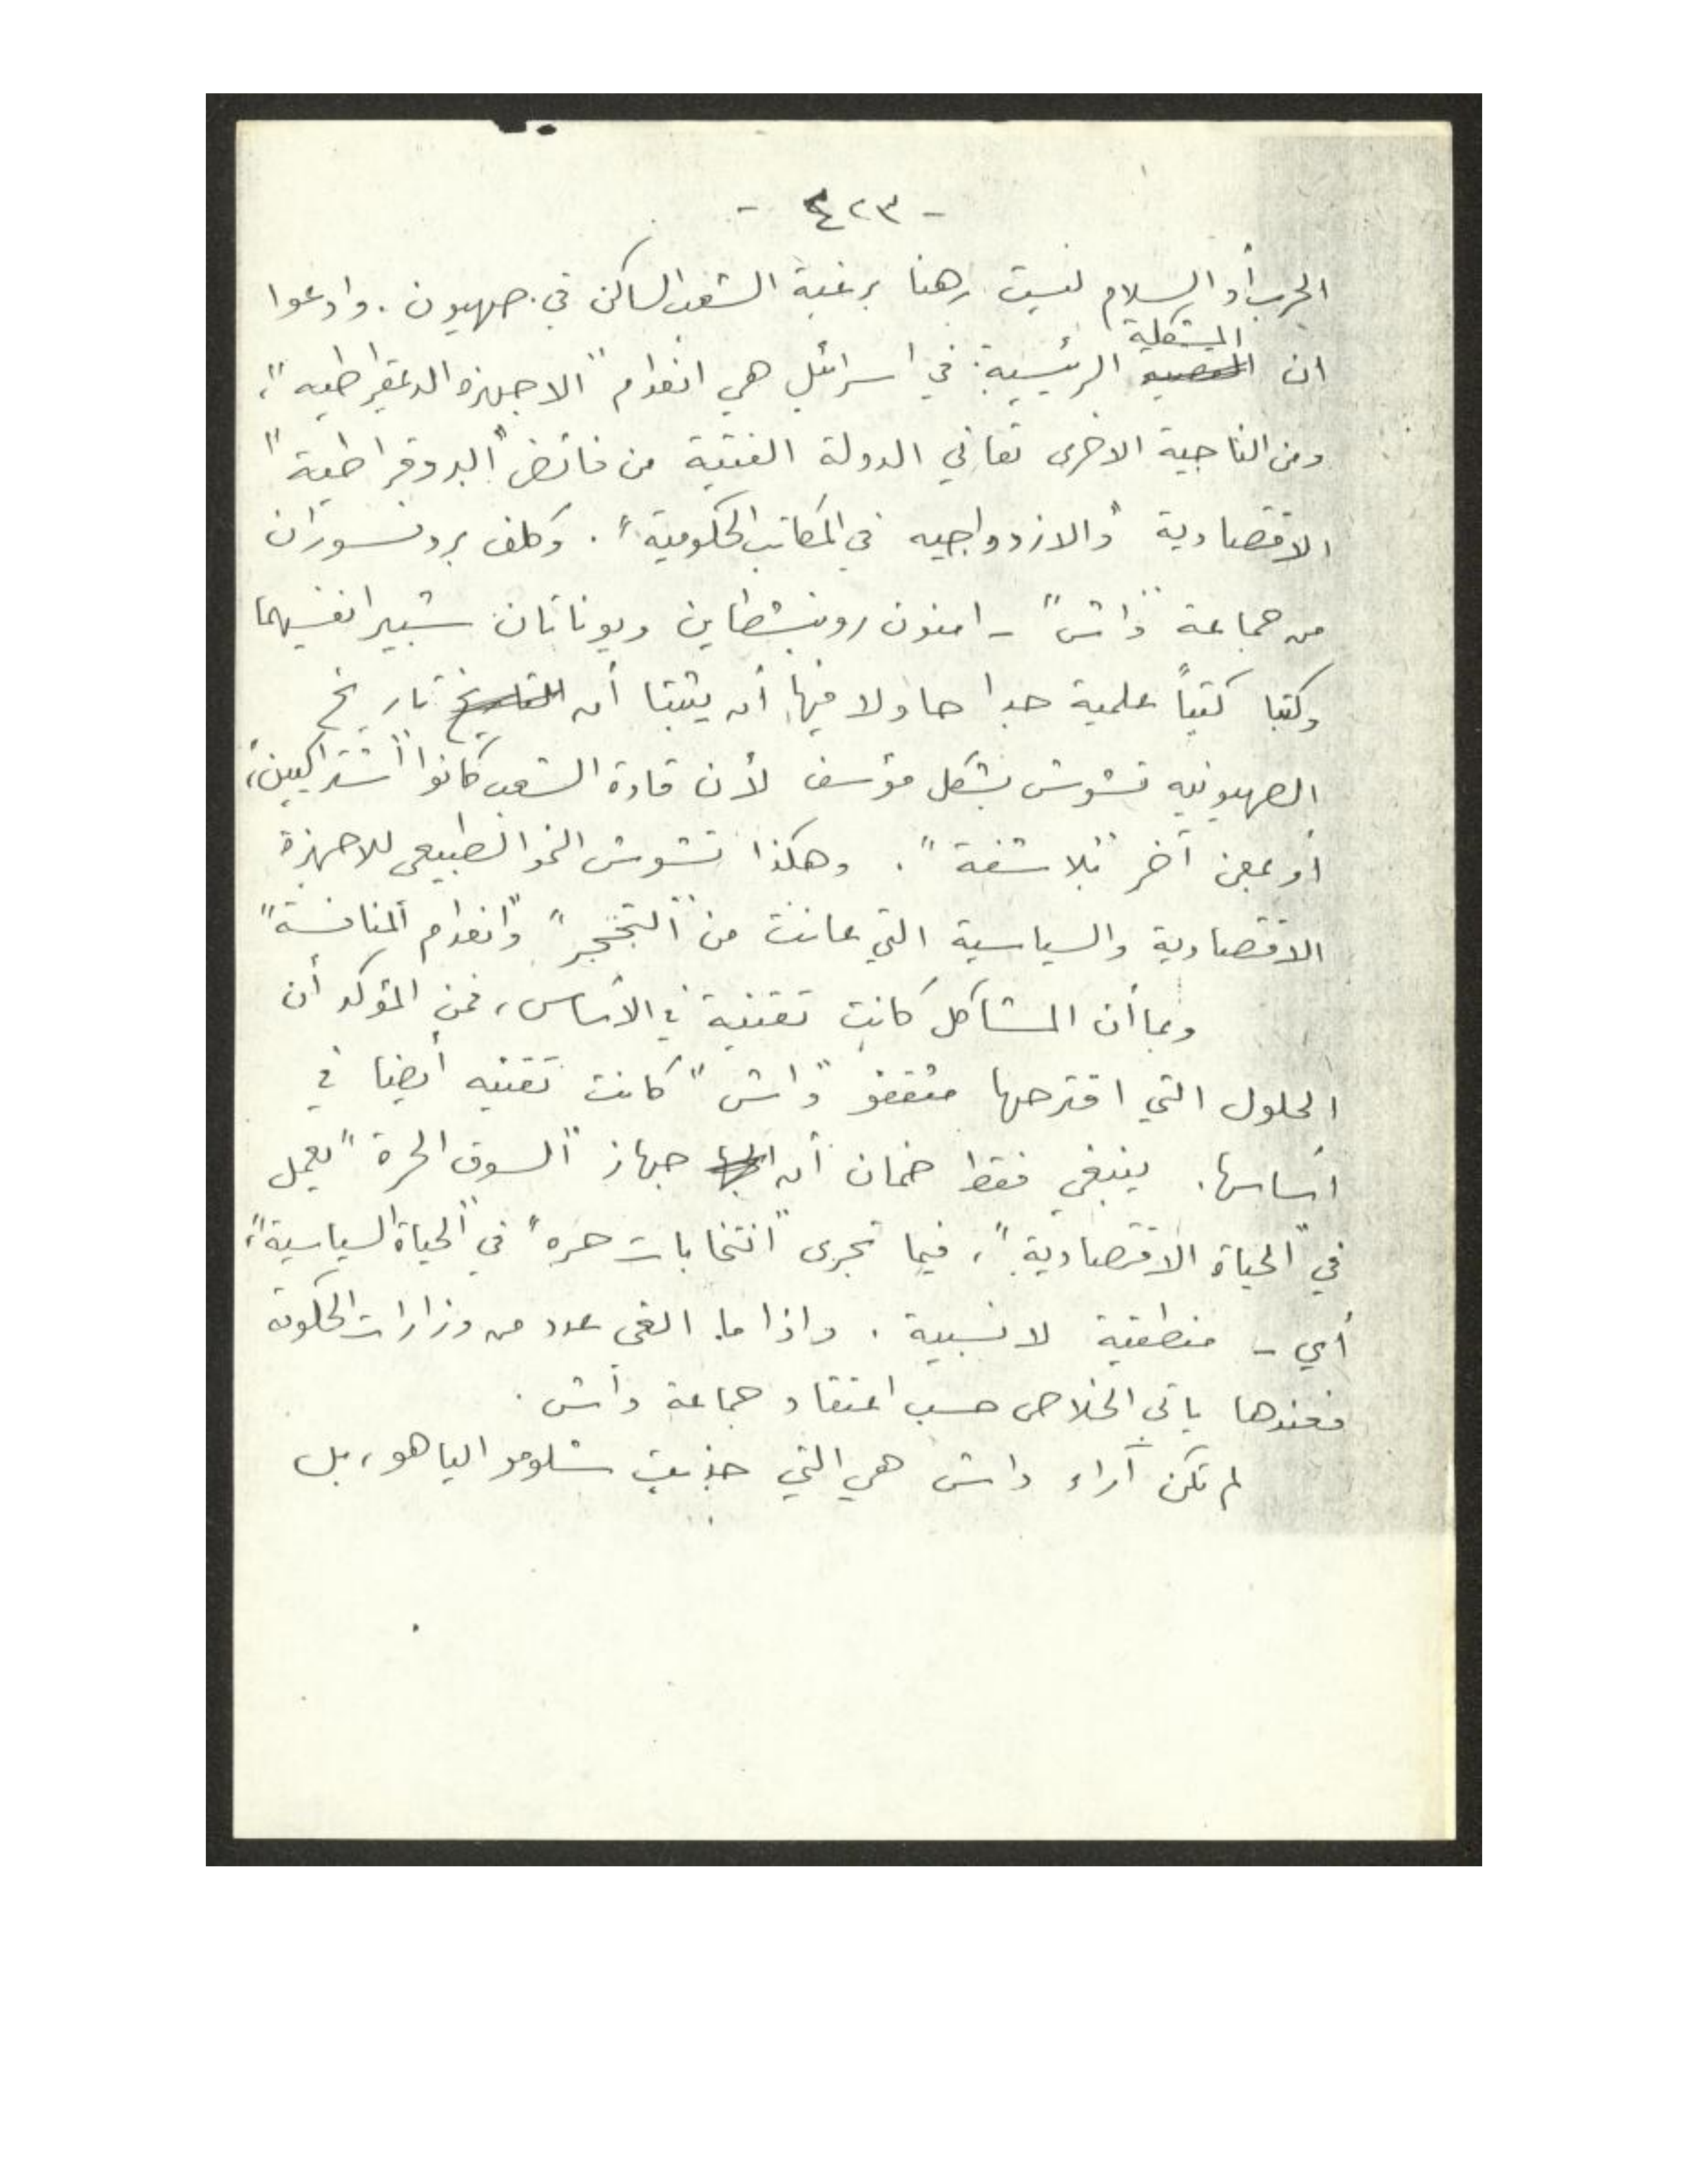 - ٤٢٣ -
الحرب أو السلام ليست رهنا برغبة الشعب الساكن في صهيون . وادعوا
المشكلة
ان الرئيسية في اسرائيل هي انعدام "الاجهزه الديمقراطيه"،
ومن الناحية الاخرى تعاني الدولة الفتية من فائض "البروقراطية"
الاقتصادية "والازدواجيه في المكاتب الحكومية" . وكلف بروفسوران
من جماعة "داش" - امنون روبنشطاين ويوناتان شبيرا نفسيهما
وكتبا كتباً علمية جدا حاولا فيها أن يثبتا أن التاريخ تاريخ
الصهيونيه تشوش بشكل مؤسف لأن قادة الشعب كانوا "اشتراكيين"،
أو بمعنى آخر "بلاشفة" . وهكذا تشوش النمو الطبيعي للاجهزة
الاقتصادية والسياسية التي عانت من "التحجر" و"انعدام المنافسة"
وبما أن المشاكل كانت تقنية في الأساس، فمن المؤكد أن
الحلول التي اقترحها مثقفو "داش" كانت تقنيه أيضا في
أساسها . ينبغي فقط ضمان أن جهاز "السوق الحرة" يعمل
في "الحياة الاقتصادية"، فيما تجرى "انتخابات حره" في "الحياة السياسية"،
أي - منطقية لا نسبية . واذا ما الغى عدد من وزارات الحكومه
فعندها ياتي الخلاص حسب اعتقاد جماعة داش .
لم تكن آراء داش هي التي جذبت شلومو الياهو، بل